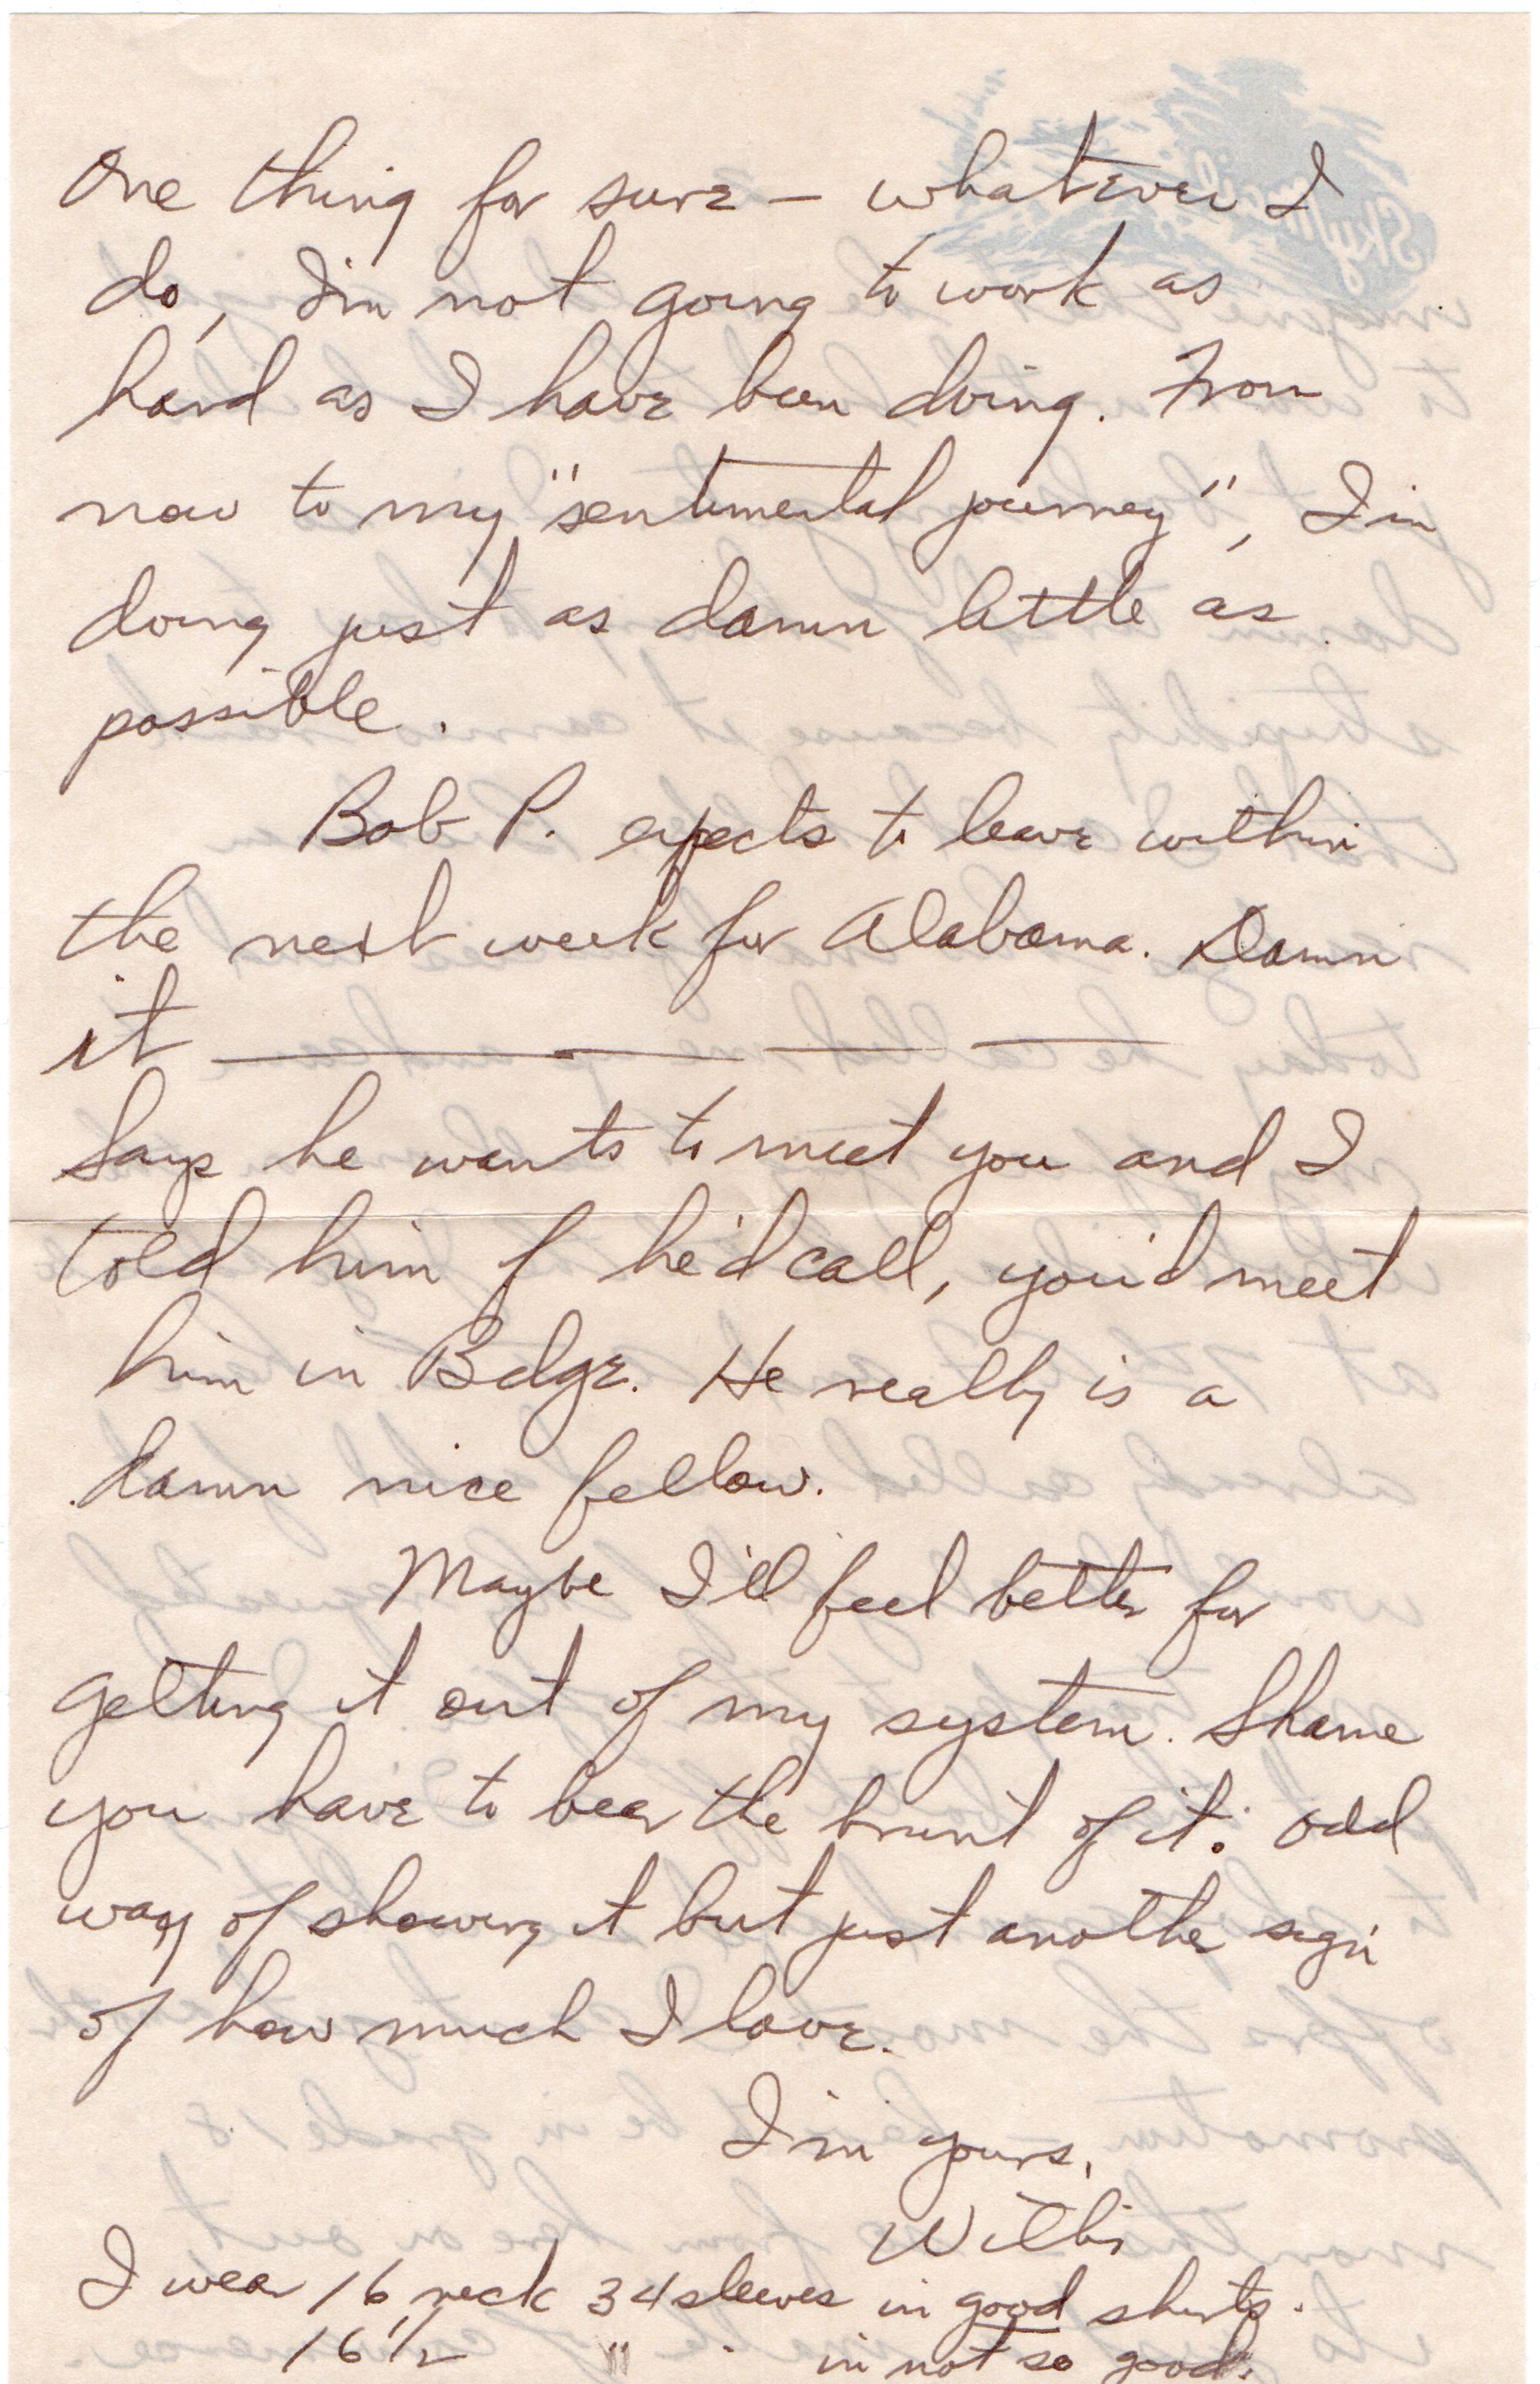 One thing for sure — whatever I
do, I'm not going to work as
hard as I have been doing. From
now to my "sentimental journey", I'm
doing just as damn little as
possible.
Bob P. expects to leave within
the next week for Alabama. Damn
it — — —
Says he wants to meet you and I
told him if he'd call, you'd meet
him in Bdge. He really is a
damn nice fellow.
Maybe I'll feel better for
getting it out of my system. Shame
you have to bear the brunt of it. Odd
way of showing it but just another sign
of how much I love.
I'm yours,
Willis
I wear 16 neck 34 sleeves in good shirts.
16 1/2 " in not so good.